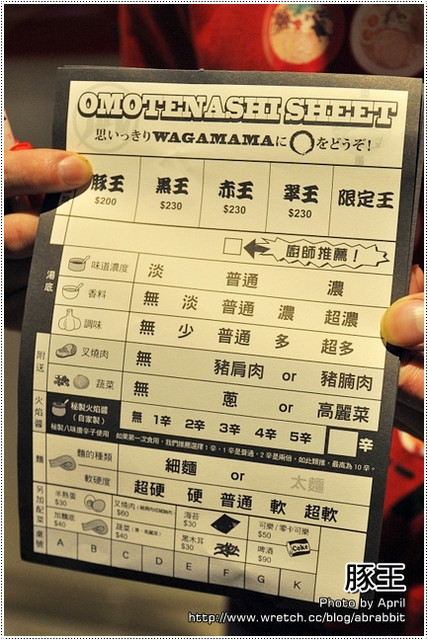 OMOTENASHI SHEET
思いっきりWAGAMAMAに〇をどうぞ!
豚王 $200 黒王 $230 赤王 $230 翠王 $230 限定王
廚師推薦!
湯底
味道濃度 淡 普通 濃
香料 無 淡 普通 濃 超濃
調味 無 少 普通 多 超多
附送
叉燒肉 無 豬肩肉 or 豬腩肉
蔬菜 無 蔥 or 高麗菜
火焰醬
秘製火焰醬(自家製) 無 1辛 2辛 3辛 4辛 5辛 辛
秘製八味唐辛子使用 如果第一次食用,我們推薦選擇1辛,1辛是普通,2辛是兩倍,如此類推,最高為10辛。
麵
麵的種類 細麵 or 太麵
軟硬度 超硬 硬 普通 軟 超軟
另加配菜
半熟蛋 $30 叉燒肉 $60 海苔 $30 可樂/零卡可樂 $50
加麵底 $40 蔬菜 $40 黑木耳 $30 啤酒 $90
Coke
桌號 A B C D E F G K
豚王
Photo by April
http://www.wretch.cc/blog/abrabbit